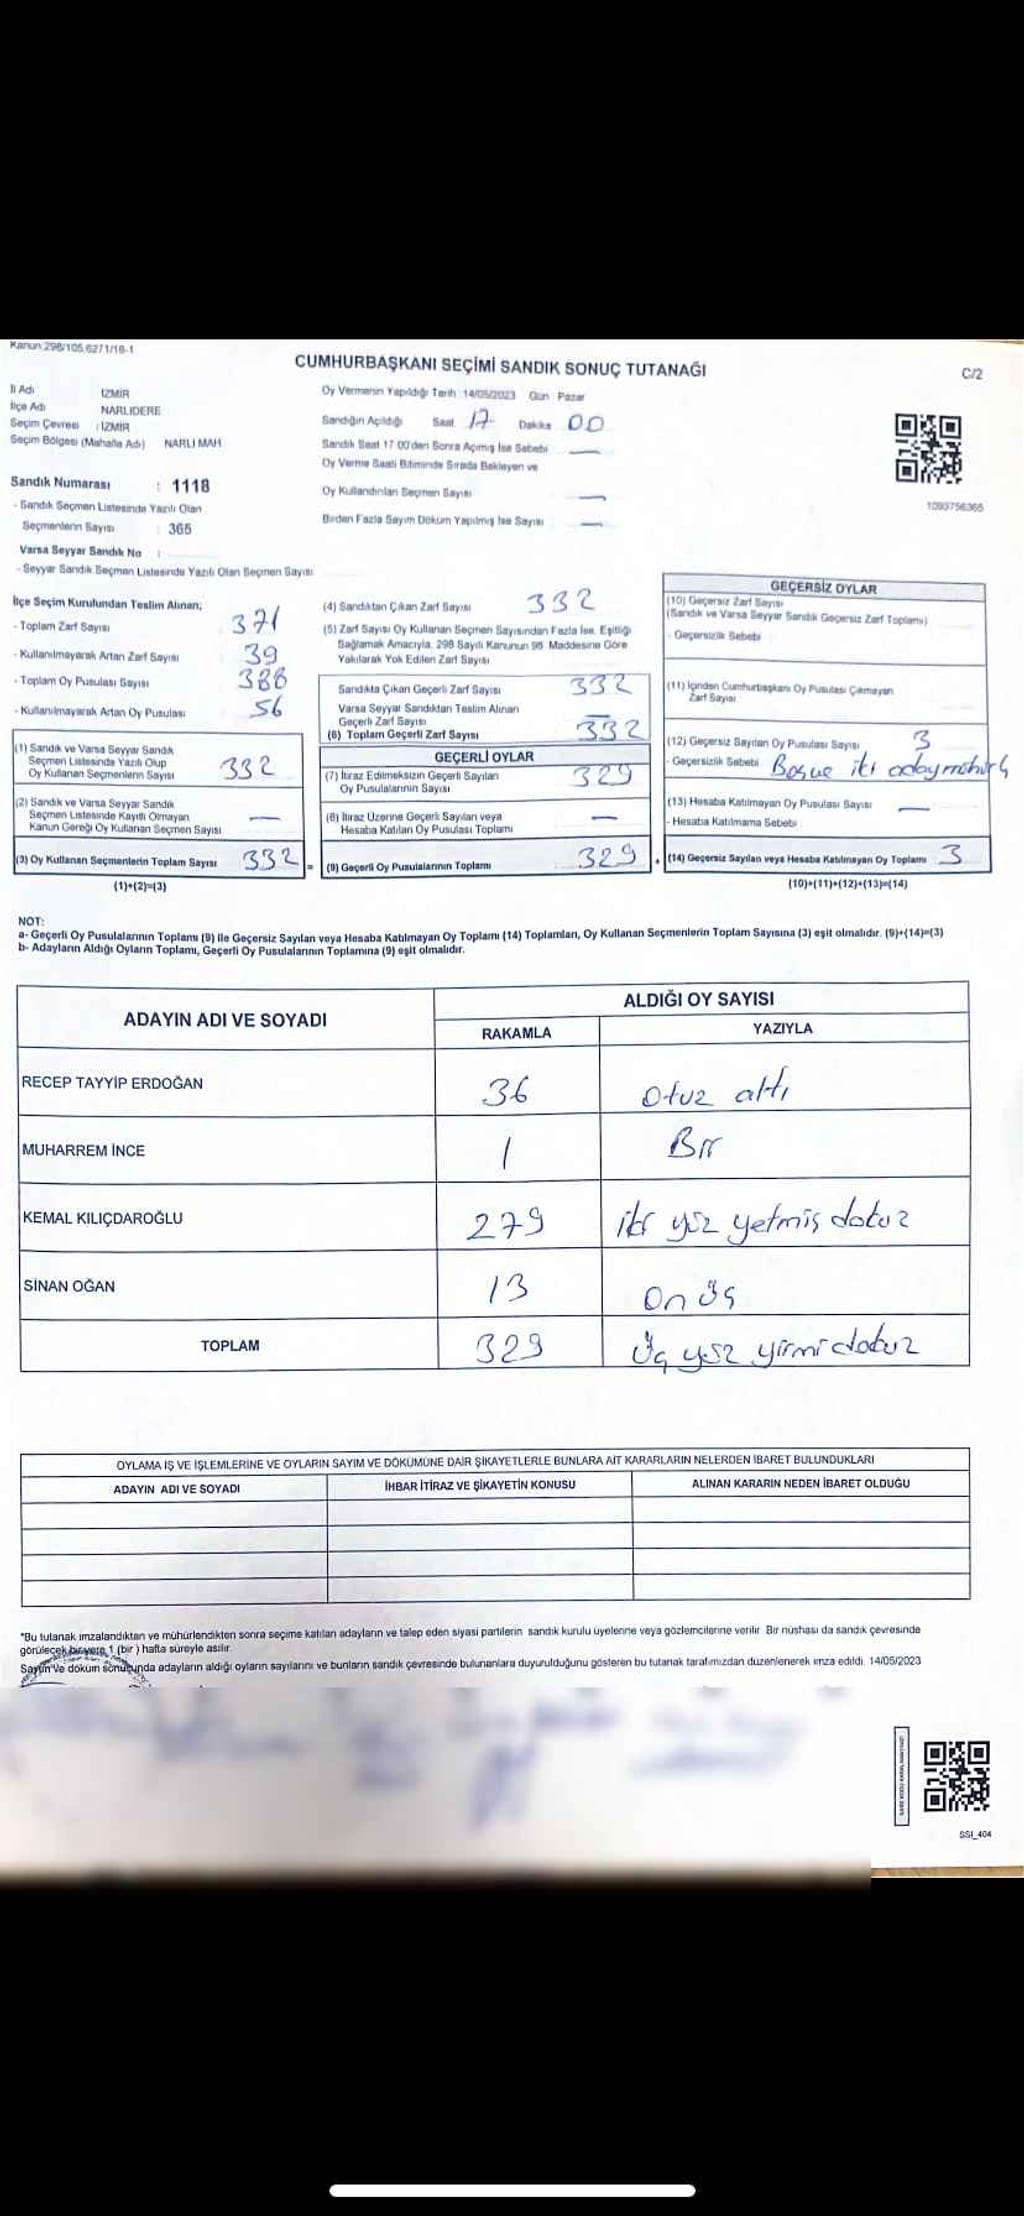 Kanun:298/105,6271/18-1
CUMHURBAŞKANI SEÇİMİ SANDIK SONUÇ TUTANAĞI
C/2
İl Adı İZMİR
İlçe Adı NARLIDERE
Seçim Çevresi : İZMİR
Seçim Bölgesi (Mahalle Adı) NARLI MAH
Sandık Numarası : 1118
- Sandık Seçmen Listesinde Yazılı Olan
Seçmenlerin Sayısı : 365
Varsa Seyyar Sandık No :
- Seyyar Sandık Seçmen Listesinde Yazılı Olan Seçmen Sayısı
Oy Vermenin Yapıldığı Tarih : 14/05/2023 Gün Pazar
Sandığın Açıldığı Saat 17 Dakika 00
Sandık Saat 17 00'den Sonra Açılmış İse Sebebi —
Oy Verme Saati Bitiminde Sırada Bekleyen ve
Oy Kullandırılan Seçmen Sayısı —
Birden Fazla Sayım Döküm Yapılmış İse Sayısı —
1093756365
İlçe Seçim Kurulundan Teslim Alınan;
- Toplam Zarf Sayısı 371
- Kullanılmayarak Artan Zarf Sayısı 39
- Toplam Oy Pusulası Sayısı 388
- Kullanılmayarak Artan Oy Pusulası 56
(1) Sandık ve Varsa Seyyar Sandık
Seçmen Listesinde Yazılı Olup
Oy Kullanan Seçmenlerin Sayısı 332
(2) Sandık ve Varsa Seyyar Sandık
Seçmen Listesinde Kayıtlı Olmayan
Kanun Gereği Oy Kullanan Seçmen Sayısı —
(3) Oy Kullanan Seçmenlerin Toplam Sayısı 332 =
(1)+(2)=(3)
(4) Sandıktan Çıkan Zarf Sayısı 332
(5) Zarf Sayısı Oy Kullanan Seçmen Sayısından Fazla İse, Eşitliği
Sağlamak Amacıyla, 298 Sayılı Kanunun 98. Maddesine Göre
Yakılarak Yok Edilen Zarf Sayısı
Sandıkta Çıkan Geçerli Zarf Sayısı 332
Varsa Seyyar Sandıktan Teslim Alınan
Geçerli Zarf Sayısı —
(6) Toplam Geçerli Zarf Sayısı 332
GEÇERLİ OYLAR
(7) İtiraz Edilmeksizin Geçerli Sayılan
Oy Pusulalarının Sayısı 329
(8) İtiraz Üzerine Geçerli Sayılan veya
Hesaba Katılan Oy Pusulası Toplamı —
(9) Geçerli Oy Pusulalarının Toplamı 329 +
GEÇERSİZ OYLAR
(10) Geçersiz Zarf Sayısı
(Sandık ve Varsa Seyyar Sandık Geçersiz Zarf Toplamı)
- Geçersizlik Sebebi
(11) İçinden Cumhurbaşkanı Oy Pusulası Çıkmayan
Zarf Sayısı
(12) Geçersiz Sayılan Oy Pusulası Sayısı 3
- Geçersizlik Sebebi Boş ve iki aday mühürlü
(13) Hesaba Katılmayan Oy Pusulası Sayısı —
- Hesaba Katılmama Sebebi
(14) Geçersiz Sayılan veya Hesaba Katılmayan Oy Toplamı 3
(10)+(11)+(12)+(13)=(14)
NOT:
a- Geçerli Oy Pusulalarının Toplamı (9) ile Geçersiz Sayılan veya Hesaba Katılmayan Oy Toplamı (14) Toplamları, Oy Kullanan Seçmenlerin Toplam Sayısına (3) eşit olmalıdır. (9)+(14)=(3)
b- Adayların Aldığı Oyların Toplamı, Geçerli Oy Pusulalarının Toplamına (9) eşit olmalıdır.
ADAYIN ADI VE SOYADI ALDIĞI OY SAYISI
RAKAMLA YAZIYLA
RECEP TAYYİP ERDOĞAN 36 Otuz altı
MUHARREM İNCE 1 Bir
KEMAL KILIÇDAROĞLU 279 iki yüz yetmiş dokuz
SİNAN OĞAN 13 On üç
TOPLAM 329 Üç yüz yirmi dokuz
OYLAMA İŞ VE İŞLEMLERİNE VE OYLARIN SAYIM VE DÖKÜMÜNE DAİR ŞİKAYETLERLE BUNLARA AİT KARARLARIN NELERDEN İBARET BULUNDUKLARI
ADAYIN ADI VE SOYADI İHBAR İTİRAZ VE ŞİKAYETİN KONUSU ALINAN KARARIN NEDEN İBARET OLDUĞU
*Bu tutanak imzalandıktan ve mühürlendikten sonra seçime katılan adayların ve talep eden siyasi partilerin sandık kurulu üyelerine veya gözlemcilerine verilir. Bir nüshası da sandık çevresinde
görülecek bir yere 1 (bir) hafta süreyle asılır.
Sayım ve döküm sonucunda adayların aldığı oyların sayılarını ve bunların sandık çevresinde bulunanlara duyurulduğunu gösteren bu tutanak tarafımızdan düzenlenerek imza edildi. 14/05/2023
SSI_404